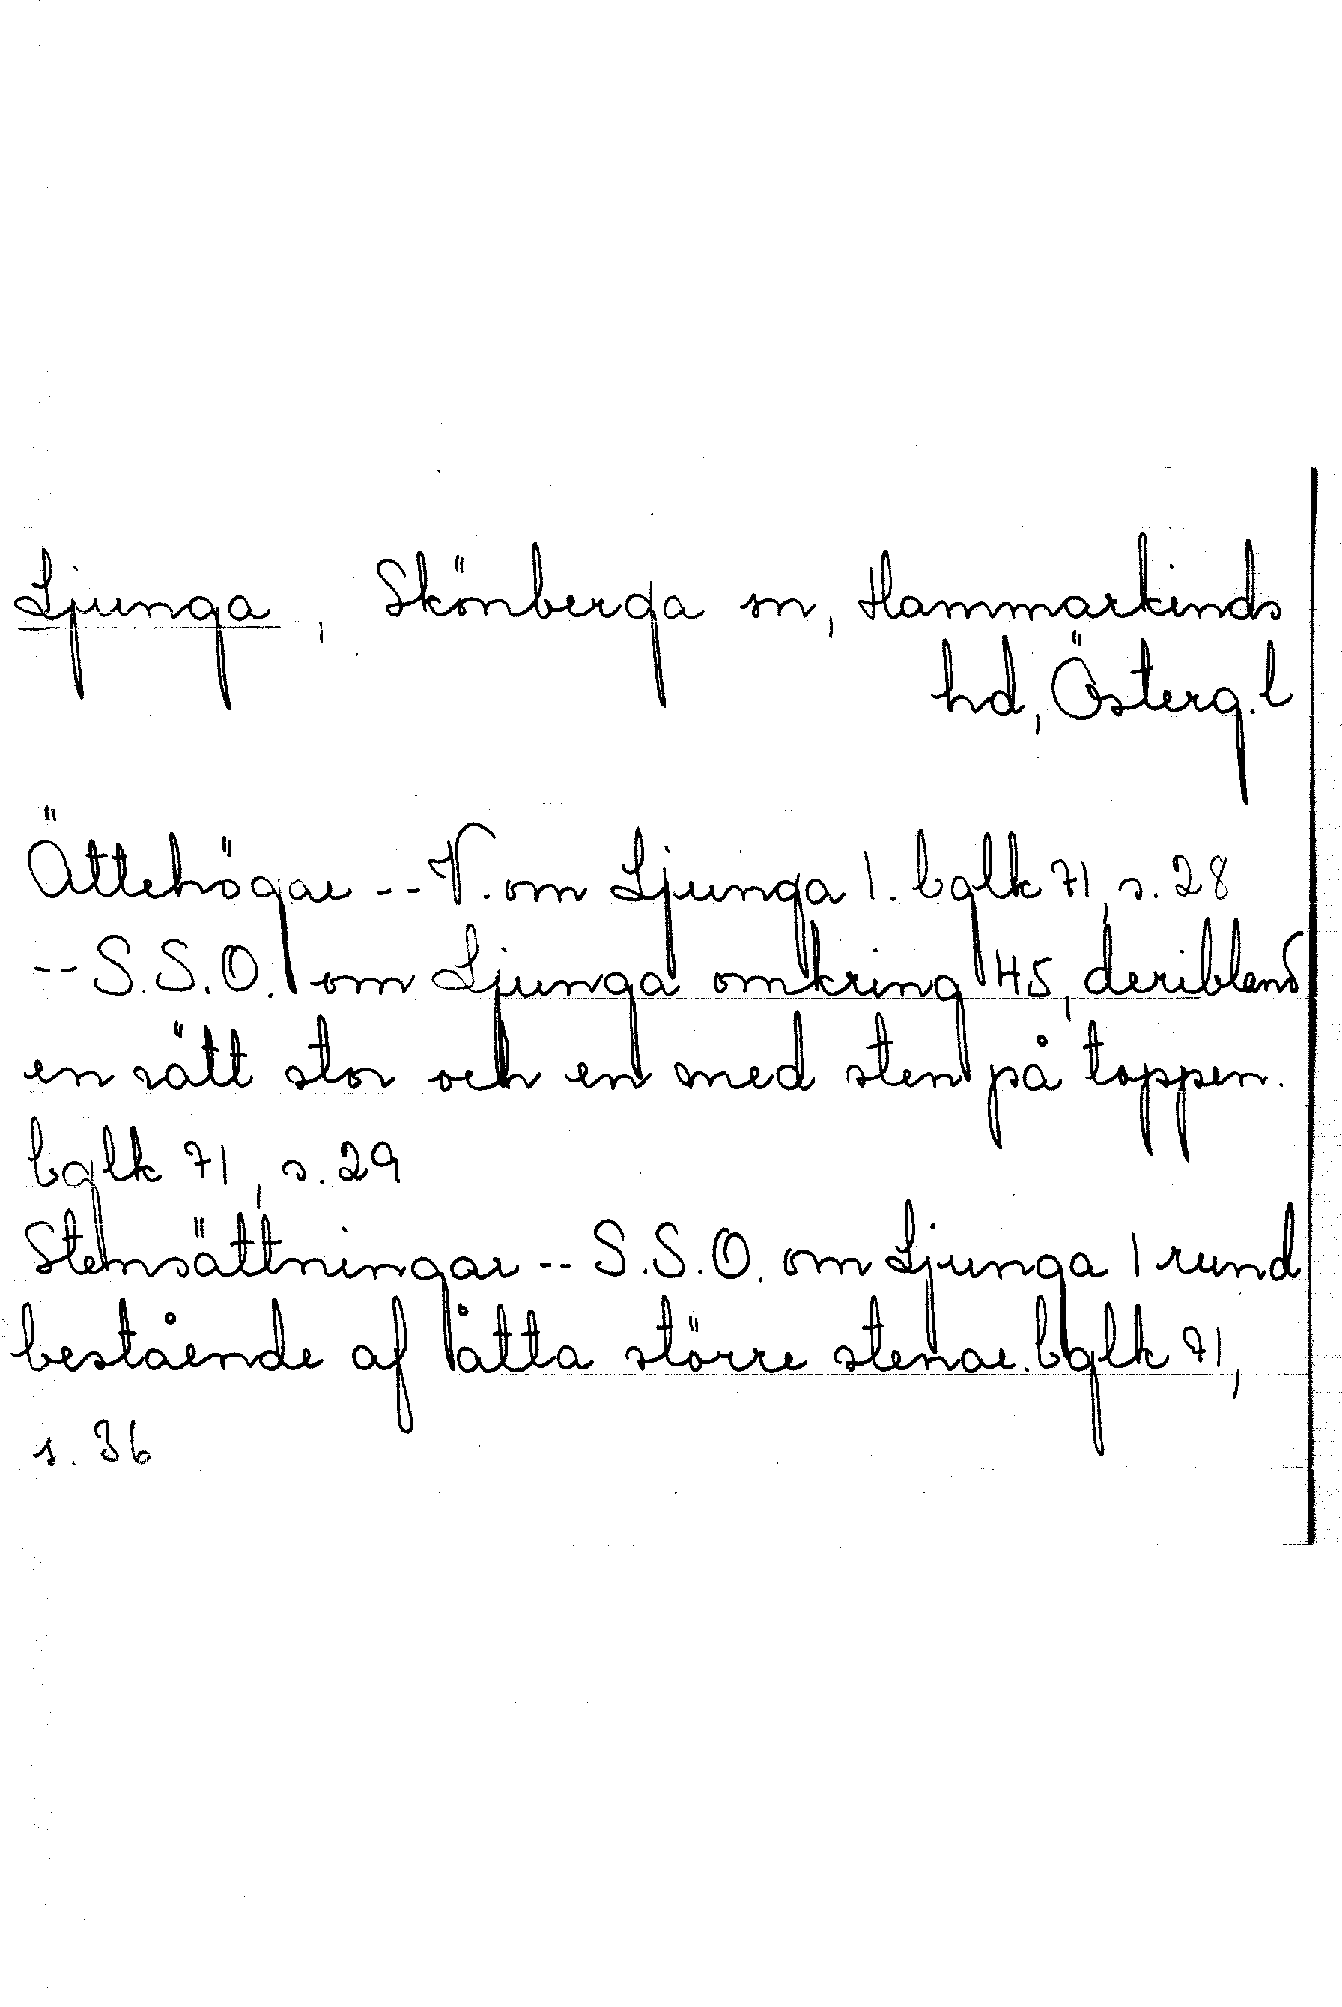 Ljunga, Skönberga sn, Hammarkinds
hd, Österg.l
Ättehögar -- V. om Ljunga 1. bglk 71, s. 28
-- S.S.O. om Ljunga omkring 45, deribland
en rätt stor och en med sten på toppen.
bglk 71, s. 29
Stensättningar -- S.S.O. om Ljunga 1 rund
bestående af åtta större stenar. bglk 71,
s. 36